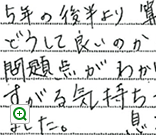 5年の後半より 算
どうして良いのか
問題点がわか
すがる気持ち
ました。